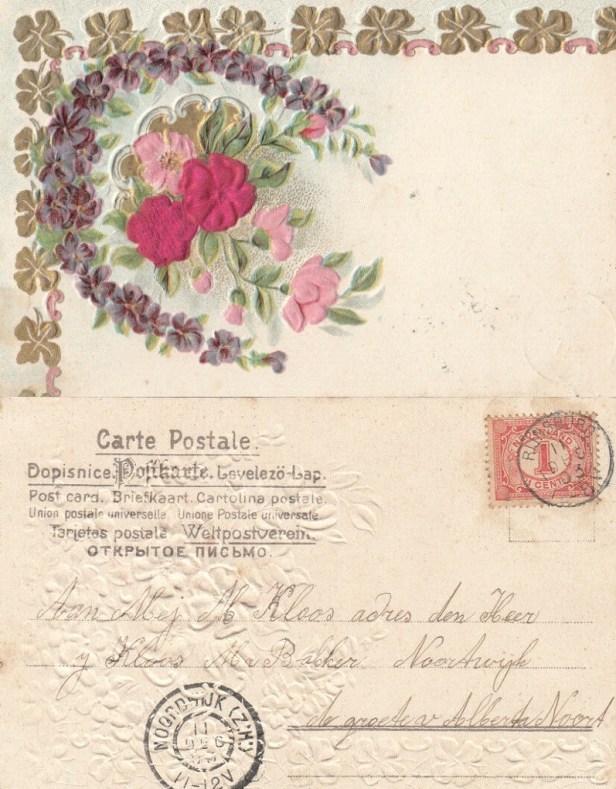 Carte Postale.
Dopisnice. Postkarte. Levelezö-Lap.
Post card. Briefkaart. Cartolina postale.
Union postale universelle Unione Postale universale
Tarjetas postale Weltpostverein.
ОТКРЫТОЕ ПИСЬМО.
NEDERLAND
1
CENT
RIJNSBURG
Aan Mej M Kloos adres den Heer
J Kloos Ma Bakker Noortwijk
de groete v Alberta Noort
NOORDWIJK (Z:H)
11
DEC
11-12V